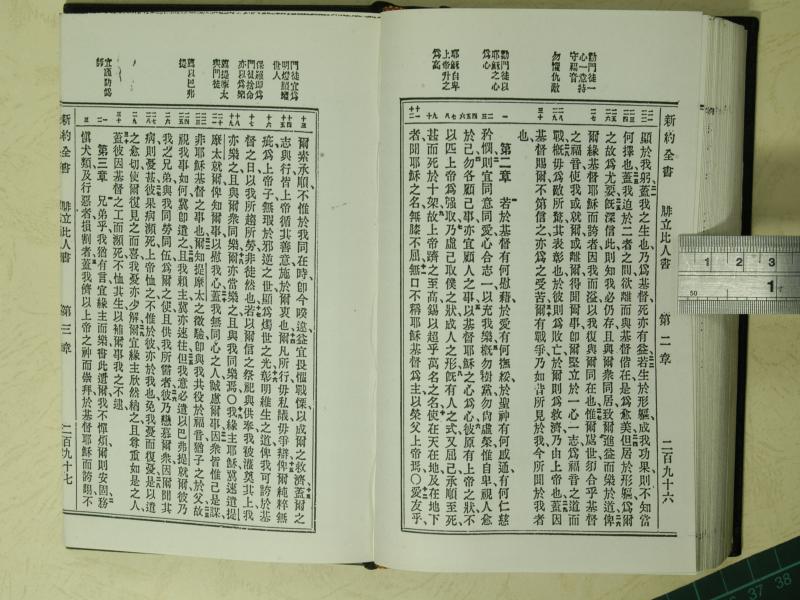 新約全書 腓立比人書 第二章 二百九十六
勸門徒一心一意持守福音
勿懼仇敵
勸門徒以耶穌之心爲心
耶穌自卑上帝升之爲高
顯於我躬蓋我之生也乃爲基督死亦有益若生於形軀成我功果則不知當
何擇也蓋我迫於二者之間欲離而與基督偕在是爲愈美但居於形軀爲爾
之故爲尤要旣深信此則知我必仍存且與爾衆同居致爾進益而樂於道俾
爾緣基督耶穌而誇者因我而溢以我復與爾同在也惟爾處世須合乎基督
之福音使我或就爾或離爾得聞爾事卽爾堅立於一心一志爲福音之道而
戰概毋爲敵所驚其表彰也於彼則爲敗亡於爾則爲救濟乃由上帝也蓋因
基督賜爾不第信之亦爲之受苦爾有戰爭乃如昔所見於我今所聞於我者
也
第二章 若於基督有何慰藉於愛有何撫綏於聖神有何感通有何仁慈
矜憫則宜同意同愛心合志一以充我樂概勿樹黨勿尚虛榮惟自卑視人愈
於己勿各顧己事亦宜顧人之事以基督耶穌之心爲心彼原有上帝之狀不
以匹上帝爲强取乃虛己取僕之狀成人之形旣有人之式又屈己承順至死
甚而死於十架故上帝躋之至高錫以超乎萬名之名使在天在地及在地下
者聞耶穌之名無膝不屈無口不稱耶穌基督爲主以榮父上帝焉○愛友乎
門徒宜爲明燈照耀世人
保羅卽爲門徒捨命亦以爲樂
薦提摩太與門徒
薦以巴弗提
宜謹防僞師
爾素承順不惟於我同在時卽今暌違益宜畏懼戰慄以成爾之救濟蓋爾之
志與行皆上帝循其善意施於爾衷也爾凡所行毋私議毋爭辯俾爾純粹無
疵爲上帝子無瑕於邪逆之世顯爲燭世之光彰明維生之道俾我可誇於基
督之日以我所趨所勞非徒然也若以爾信之祭祀與供奉我被灌奠其上我
亦樂之且與爾衆同樂爾亦當樂之且與我同樂焉○我緣主耶穌冀速遣提
摩太就爾俾知爾事以慰我心蓋我無同心之人誠慮爾事因衆皆惟己是謀
非耶穌基督之事也爾知提摩太之徵驗卽與我共役於福音猶子之於父故
視我事如何冀卽遣之且我賴主冀亦速往但我意必遣以巴弗提就爾彼乃
我之兄弟與我同勞同伍爲爾之使且供我所需者彼乃戀慕爾衆因爾聞其
病則憂甚彼果病瀕死上帝恤之不惟於彼亦於我也免我憂而復憂是以遣
之愈切使爾復見之而喜我憂亦少解爾宜緣主欣然納之且尊重如是之人
蓋彼因基督之工而瀕死不恤其生以補爾事我之不逮
第三章 兄弟乎我猶有言宜緣主而樂書此遺爾我不憚煩爾則安固務
愼犬類及行惡者損割者蓋我儕以上帝之神而崇拜於基督耶穌而誇賜不
新約全書 腓立比人書 第三章 二百九十七
1 2 3
50
1
37 38